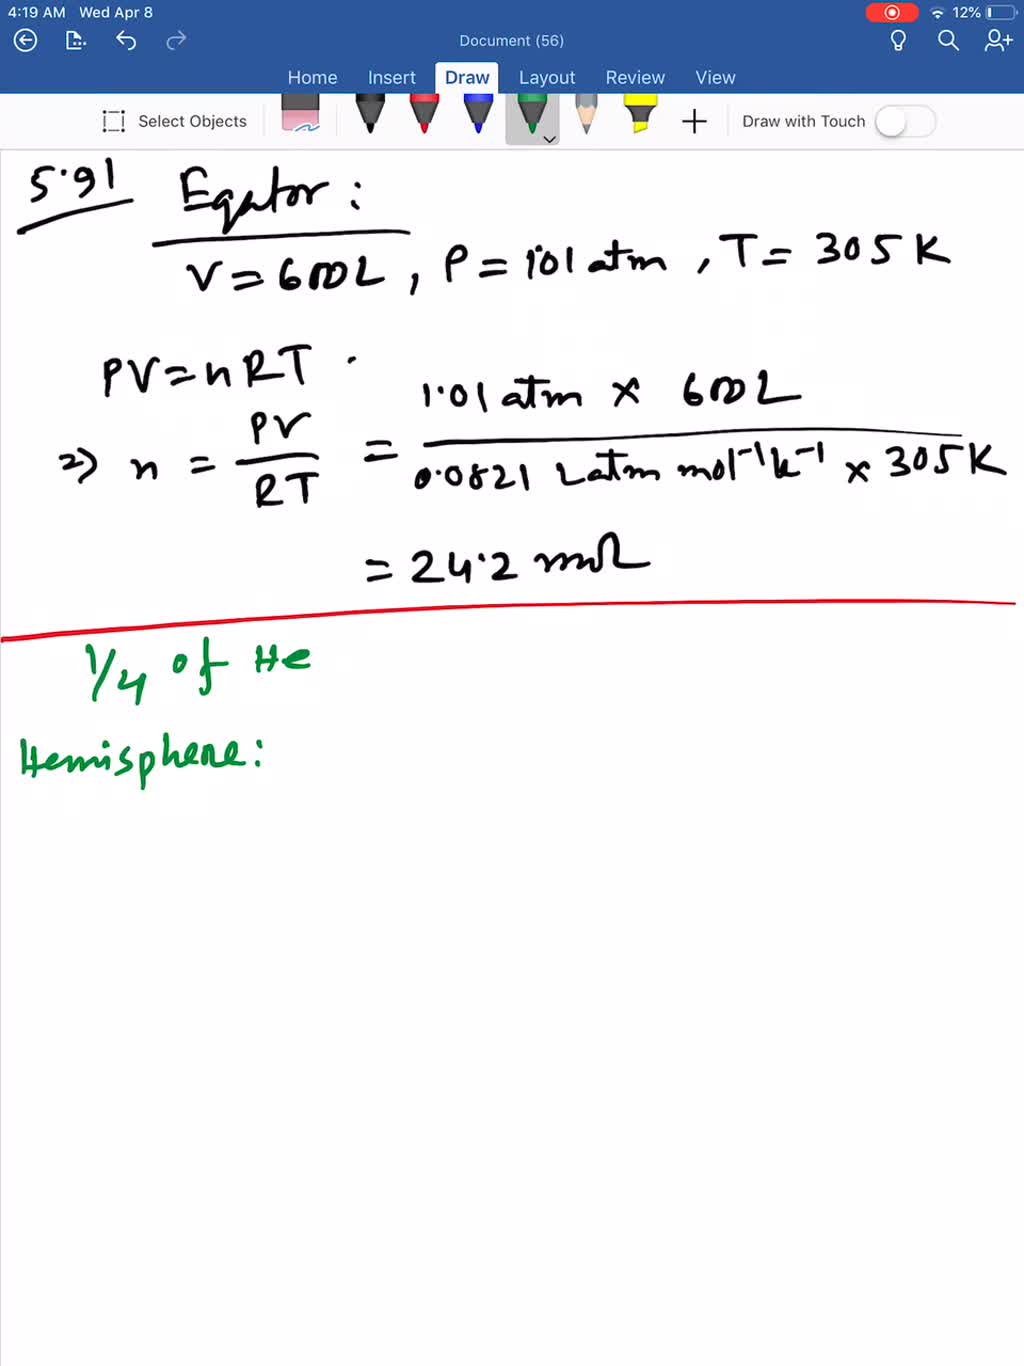 4:19 AM Wed Apr 8 12%
Document (56)
Home Insert Draw Layout Review View
Select Objects Draw with Touch
5.91 Eqator:
V = 600L, P = 1.01 atm, T = 305 K
PV = nRT
=> n = PV/RT = 1.01 atm × 600L / 0.0821 L atm mol⁻¹ k⁻¹ × 305 K
= 24.2 mol
1/4 of He
Hemisphere: